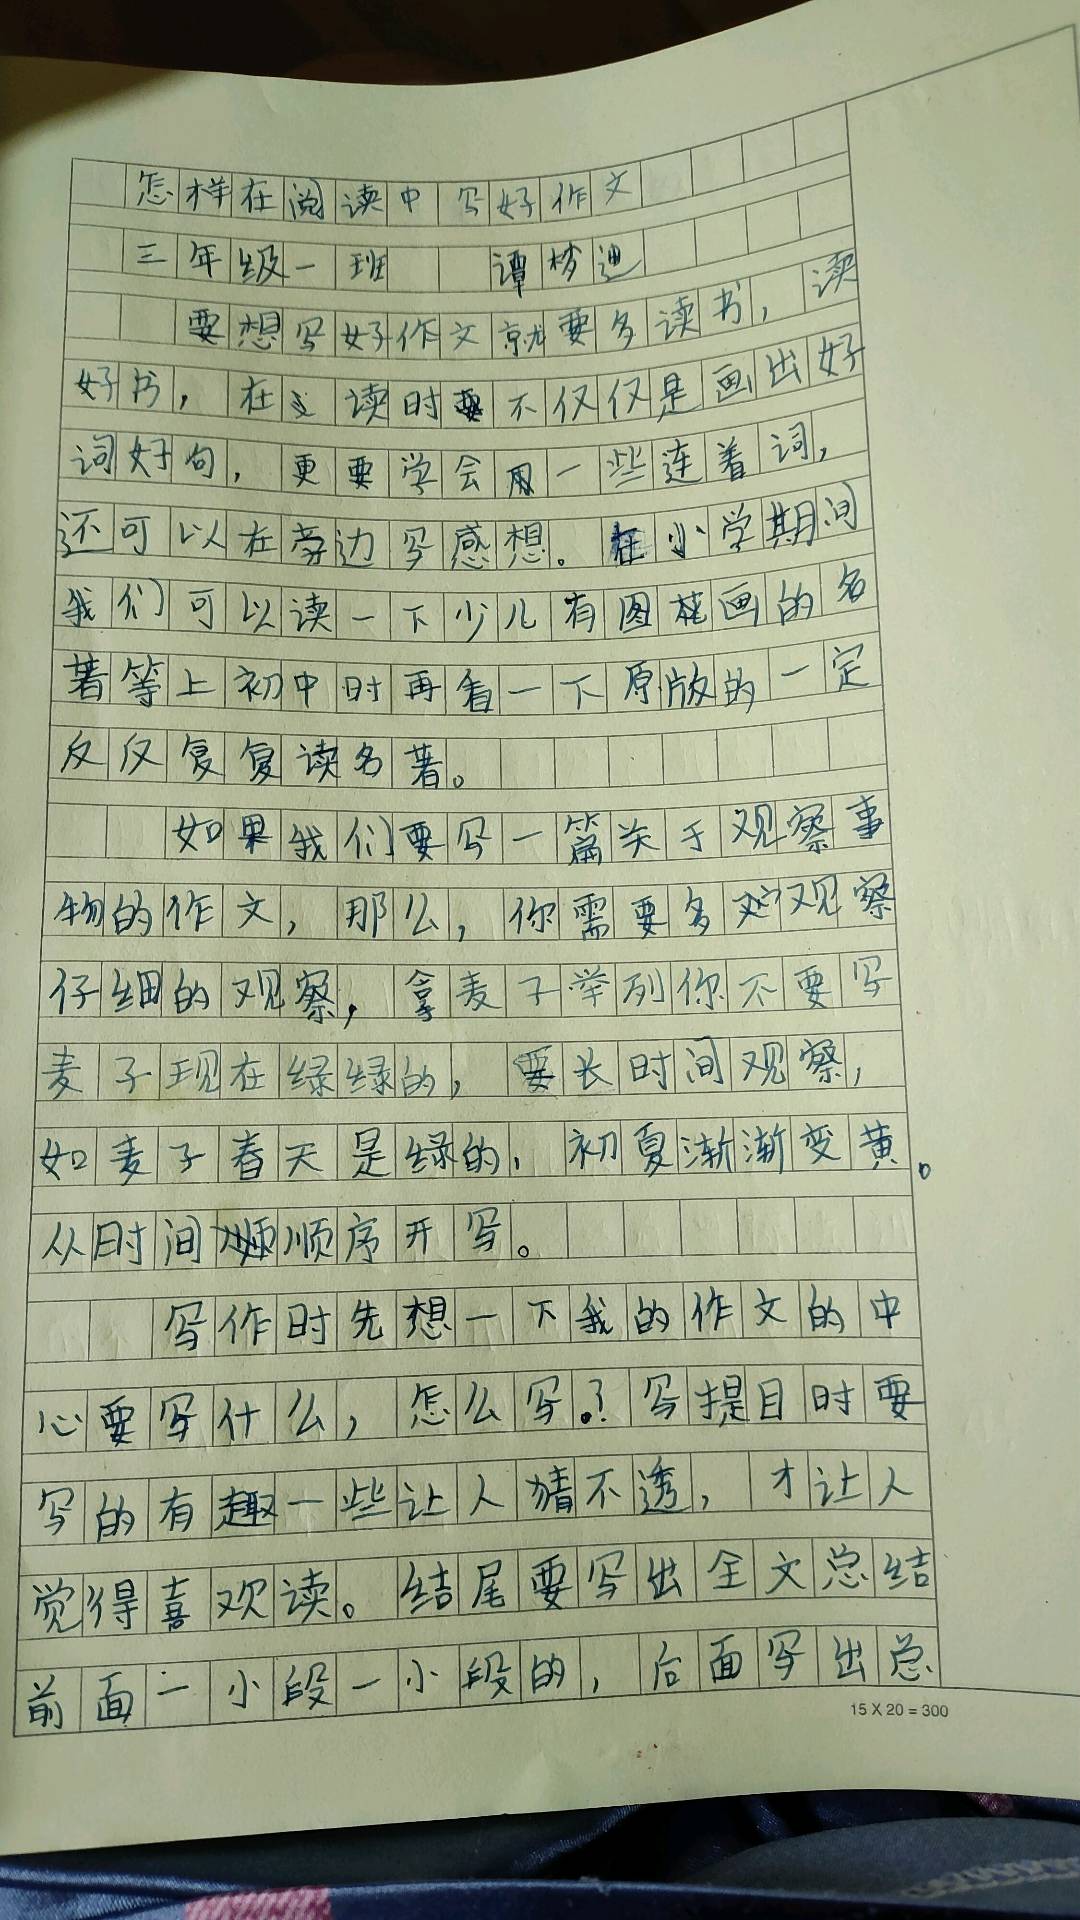 怎样在阅读中写好作文
三年级一班 谭梦迪
要想写好作文就要多读书，读
好书，在读时要不仅仅是画出好
词好句，更要学会用一些连着词，
还可以在旁边写感想。在小学期间
我们可以读一下少儿有图画的名
著等上初中时再看一下原版的一定
反反复复读名著。
如果我们要写一篇关于观察事
物的作文，那么，你需要多观察
仔细的观察，拿麦子举列你不要写
麦子现在绿绿的，要长时间观察，
如麦子春天是绿的，初夏渐渐变黄。
从时间顺序开写。
写作时先想一下我的作文的中
心要写什么，怎么写？写提目时要
写的有趣一些让人猜不透，才让人
觉得喜欢读。结尾要写出全文总结
前面一小段一小段的，后面写出总
15 X 20 = 300